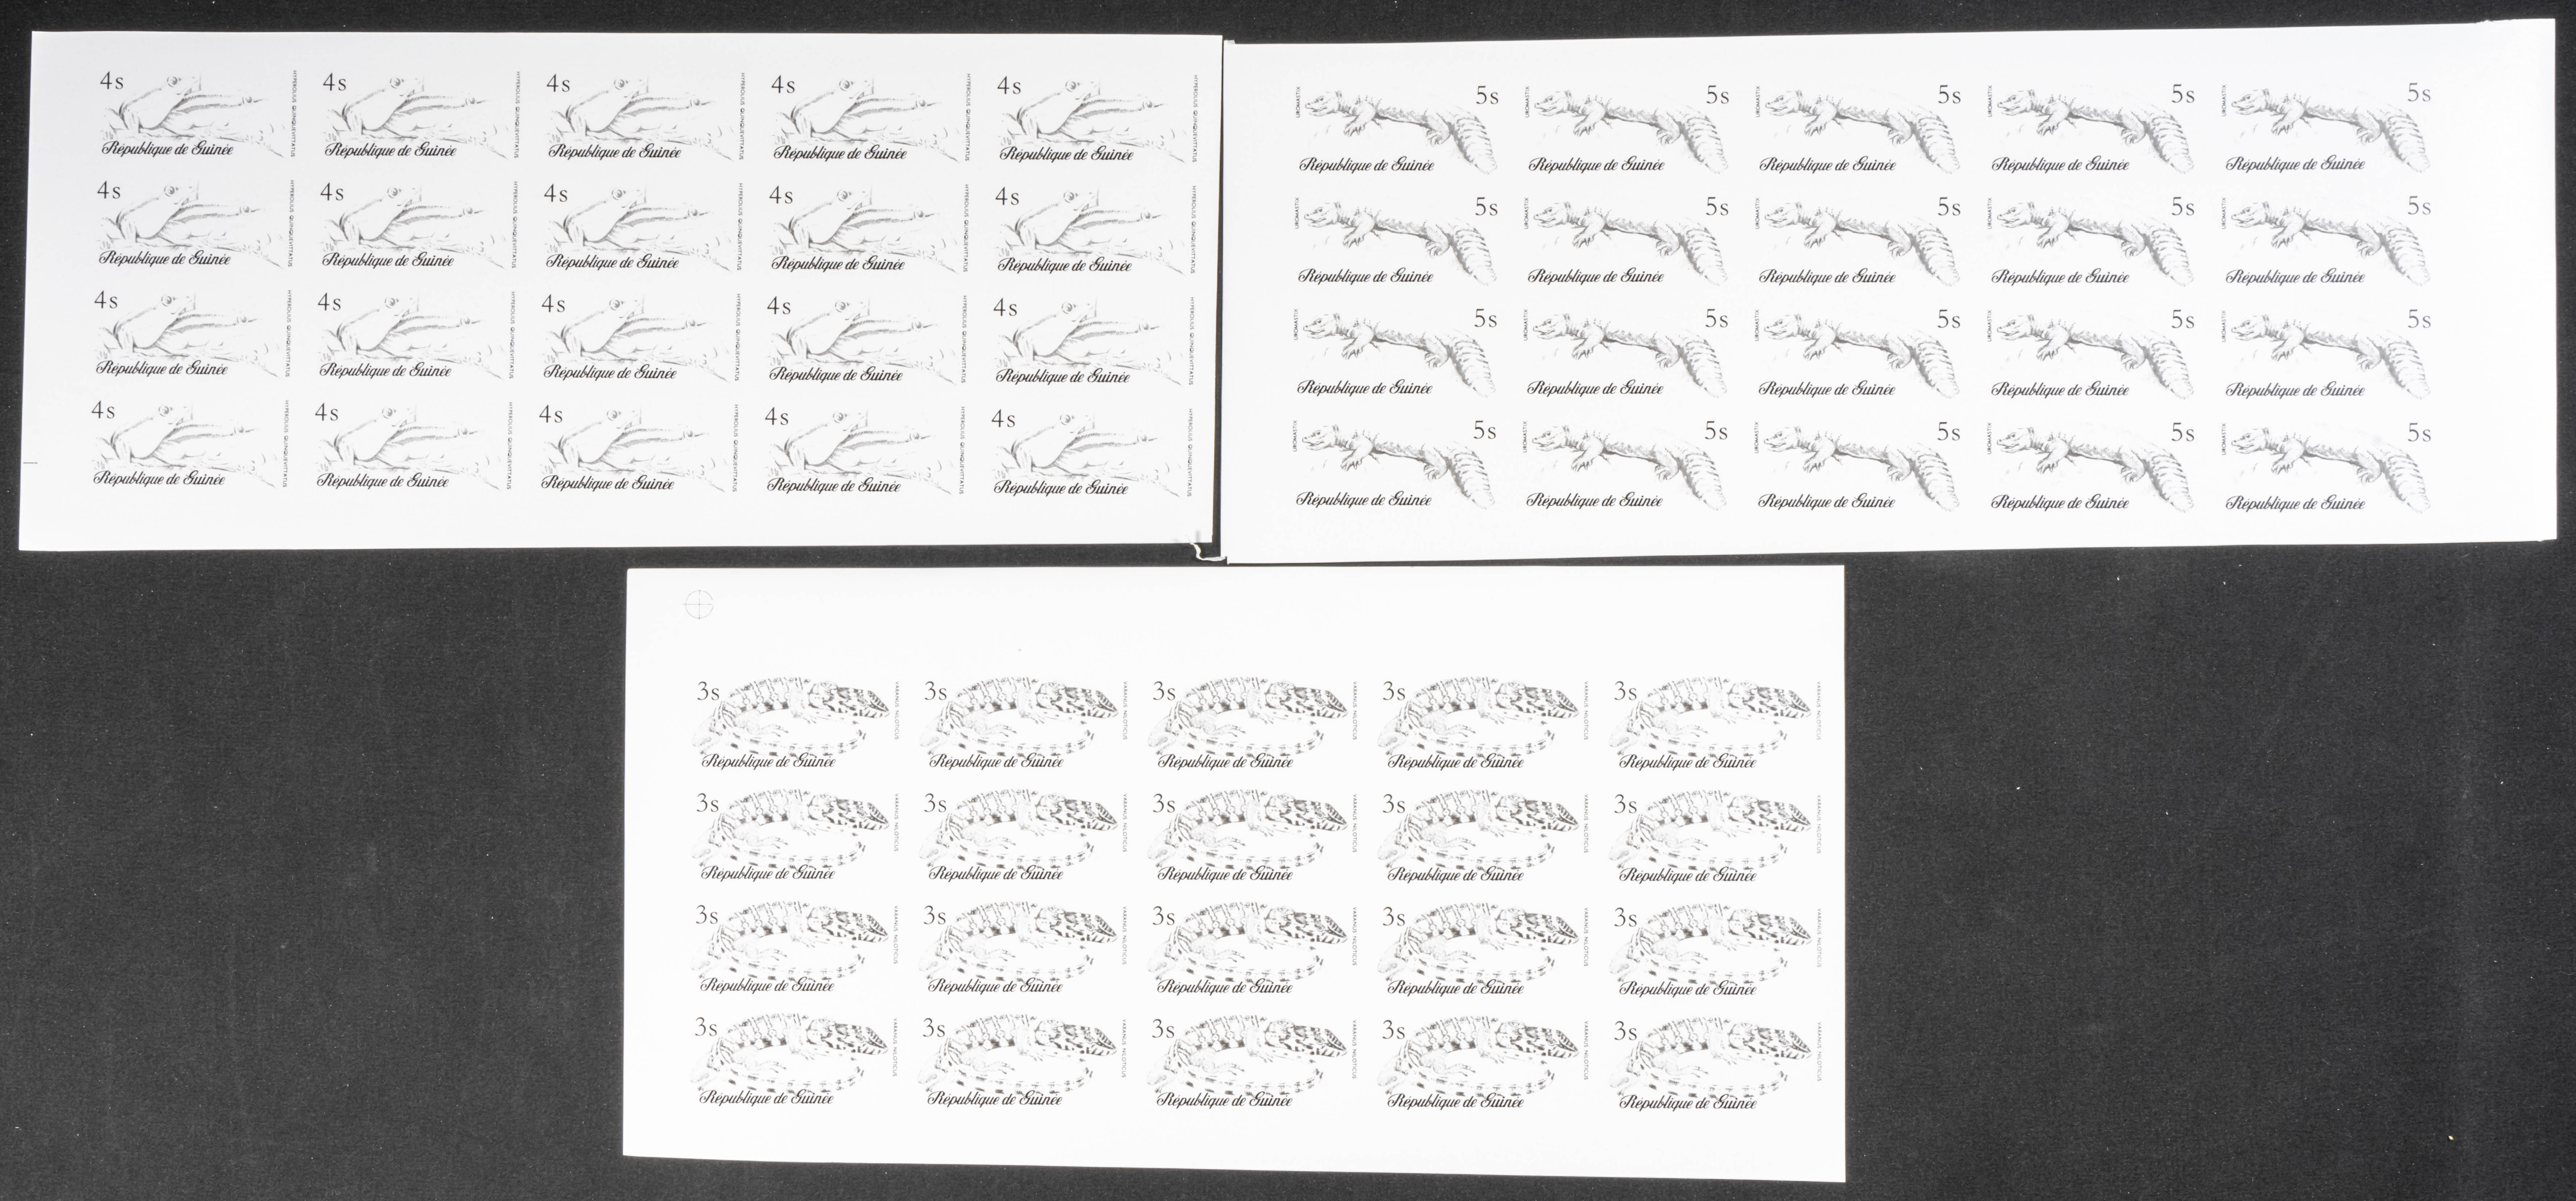 4s HYPEROLIUS QUINQUEVITTATUS 4s HYPEROLIUS QUINQUEVITTATUS 4s HYPEROLIUS QUINQUEVITTATUS 4s HYPEROLIUS QUINQUEVITTATUS 4s HYPEROLIUS QUINQUEVITTATUS
République de Guinée République de Guinée République de Guinée République de Guinée République de Guinée
4s HYPEROLIUS QUINQUEVITTATUS 4s HYPEROLIUS QUINQUEVITTATUS 4s HYPEROLIUS QUINQUEVITTATUS 4s HYPEROLIUS QUINQUEVITTATUS 4s HYPEROLIUS QUINQUEVITTATUS
République de Guinée République de Guinée République de Guinée République de Guinée République de Guinée
4s HYPEROLIUS QUINQUEVITTATUS 4s HYPEROLIUS QUINQUEVITTATUS 4s HYPEROLIUS QUINQUEVITTATUS 4s HYPEROLIUS QUINQUEVITTATUS 4s HYPEROLIUS QUINQUEVITTATUS
République de Guinée République de Guinée République de Guinée République de Guinée République de Guinée
4s HYPEROLIUS QUINQUEVITTATUS 4s HYPEROLIUS QUINQUEVITTATUS 4s HYPEROLIUS QUINQUEVITTATUS 4s HYPEROLIUS QUINQUEVITTATUS 4s HYPEROLIUS QUINQUEVITTATUS
République de Guinée République de Guinée République de Guinée République de Guinée République de Guinée
UROMASTIX 5s UROMASTIX 5s UROMASTIX 5s UROMASTIX 5s UROMASTIX 5s
République de Guinée République de Guinée République de Guinée République de Guinée République de Guinée
UROMASTIX 5s UROMASTIX 5s UROMASTIX 5s UROMASTIX 5s UROMASTIX 5s
République de Guinée République de Guinée République de Guinée République de Guinée République de Guinée
UROMASTIX 5s UROMASTIX 5s UROMASTIX 5s UROMASTIX 5s UROMASTIX 5s
République de Guinée République de Guinée République de Guinée République de Guinée République de Guinée
UROMASTIX 5s UROMASTIX 5s UROMASTIX 5s UROMASTIX 5s UROMASTIX 5s
République de Guinée République de Guinée République de Guinée République de Guinée République de Guinée
3s VARANUS NILOTICUS 3s VARANUS NILOTICUS 3s VARANUS NILOTICUS 3s VARANUS NILOTICUS 3s VARANUS NILOTICUS
République de Guinée République de Guinée République de Guinée République de Guinée République de Guinée
3s VARANUS NILOTICUS 3s VARANUS NILOTICUS 3s VARANUS NILOTICUS 3s VARANUS NILOTICUS 3s VARANUS NILOTICUS
République de Guinée République de Guinée République de Guinée République de Guinée République de Guinée
3s VARANUS NILOTICUS 3s VARANUS NILOTICUS 3s VARANUS NILOTICUS 3s VARANUS NILOTICUS 3s VARANUS NILOTICUS
République de Guinée République de Guinée République de Guinée République de Guinée République de Guinée
3s VARANUS NILOTICUS 3s VARANUS NILOTICUS 3s VARANUS NILOTICUS 3s VARANUS NILOTICUS 3s VARANUS NILOTICUS
République de Guinée République de Guinée République de Guinée République de Guinée République de Guinée